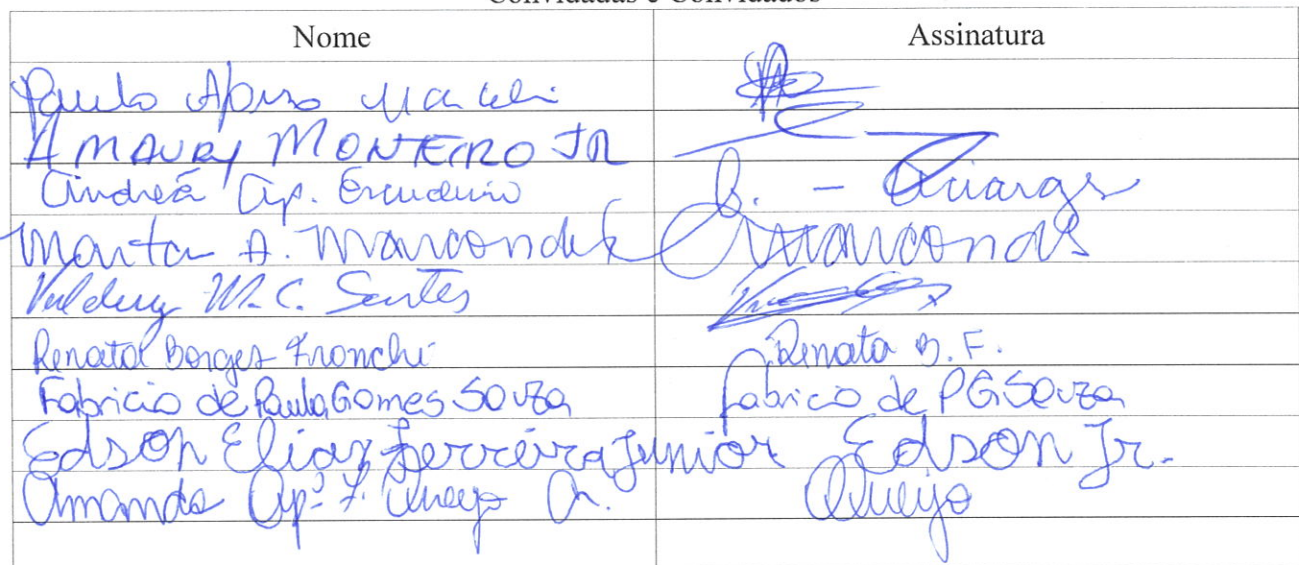 Convidadas e Convidados
Nome Assinatura
Paulo Afonso
AMAURY MONTEIRO JR
Andréa Ap. Escudeiro
Marta A. Marcondes Marcondes
M. C. Santos
Renata Borges Franchi Renata B. F.
Fabricio de Paula Gomes Souza Fabrico de PG Souza
Edson Elias Ferreira Junior Edson Jr.
Amanda Ap.ª F. Queijo Queijo